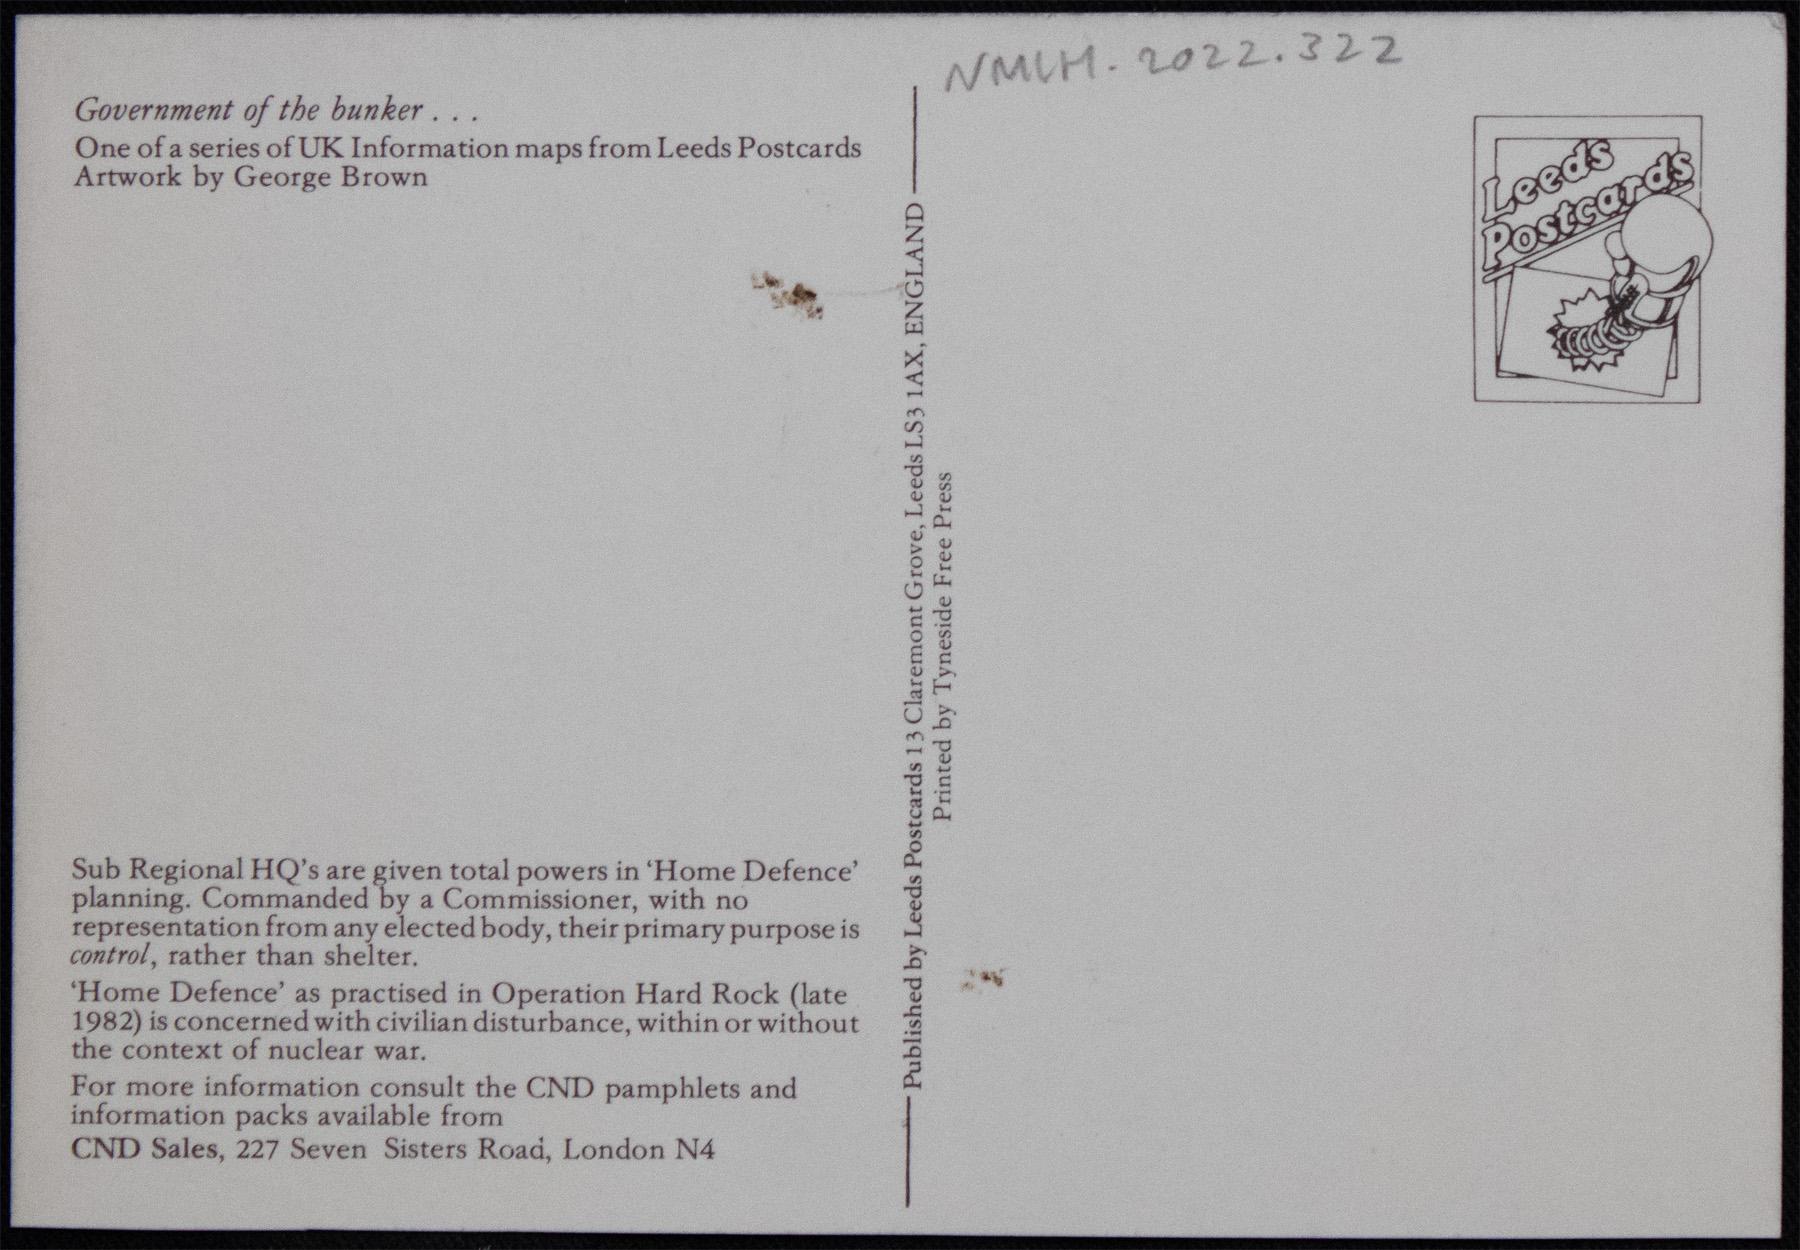 NMLH. 2022.322
Government of the bunker . . .
One of a series of UK Information maps from Leeds Postcards
Artwork by George Brown
Leeds
Postcards
Published by Leeds Postcards 13 Claremont Grove, Leeds LS3 1AX, ENGLAND
Printed by Tyneside Free Press
Sub Regional HQ's are given total powers in ‘Home Defence’
planning. Commanded by a Commissioner, with no
representation from any elected body, their primary purpose is
control, rather than shelter.
‘Home Defence’ as practised in Operation Hard Rock (late
1982) is concerned with civilian disturbance, within or without
the context of nuclear war.
For more information consult the CND pamphlets and
information packs available from
CND Sales, 227 Seven Sisters Road, London N4